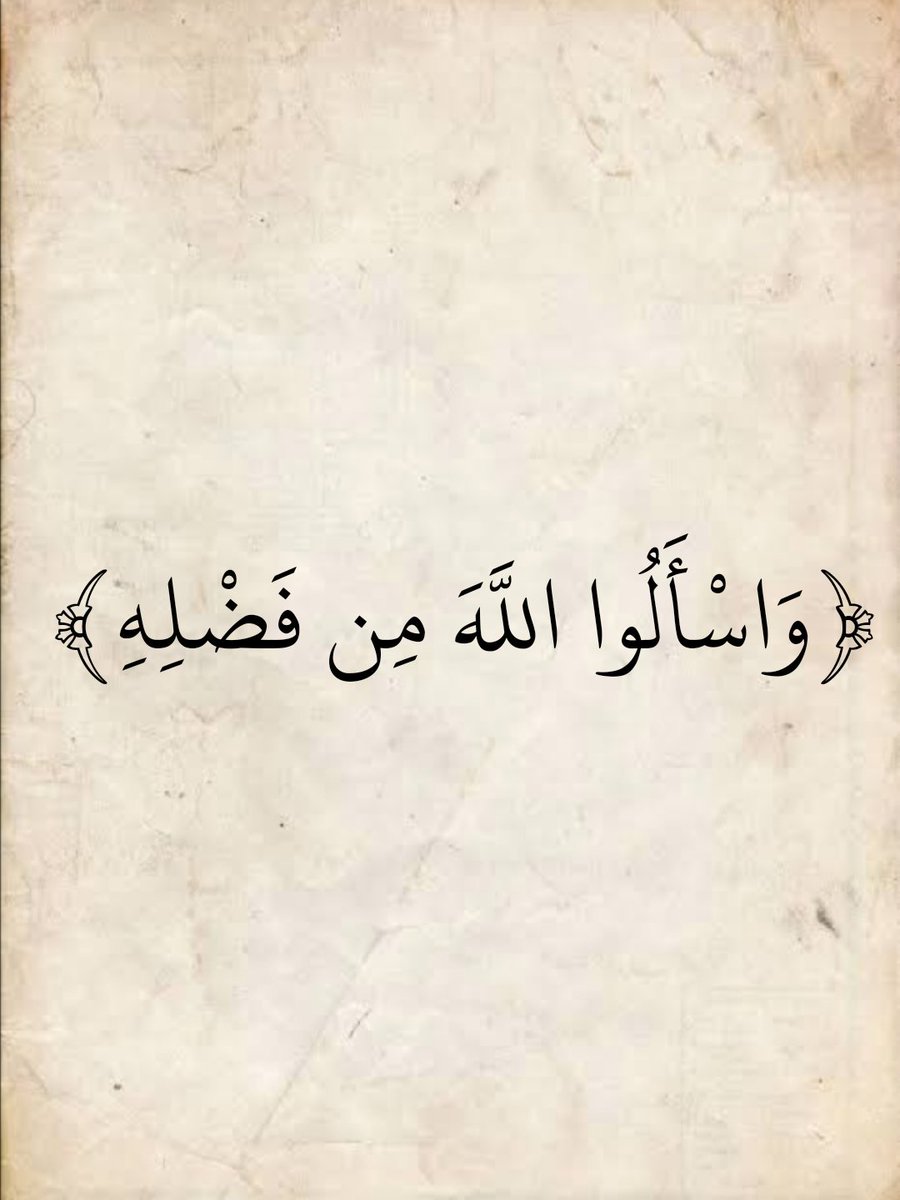 ﴿وَاسْأَلُوا اللَّهَ مِن فَضْلِهِ﴾